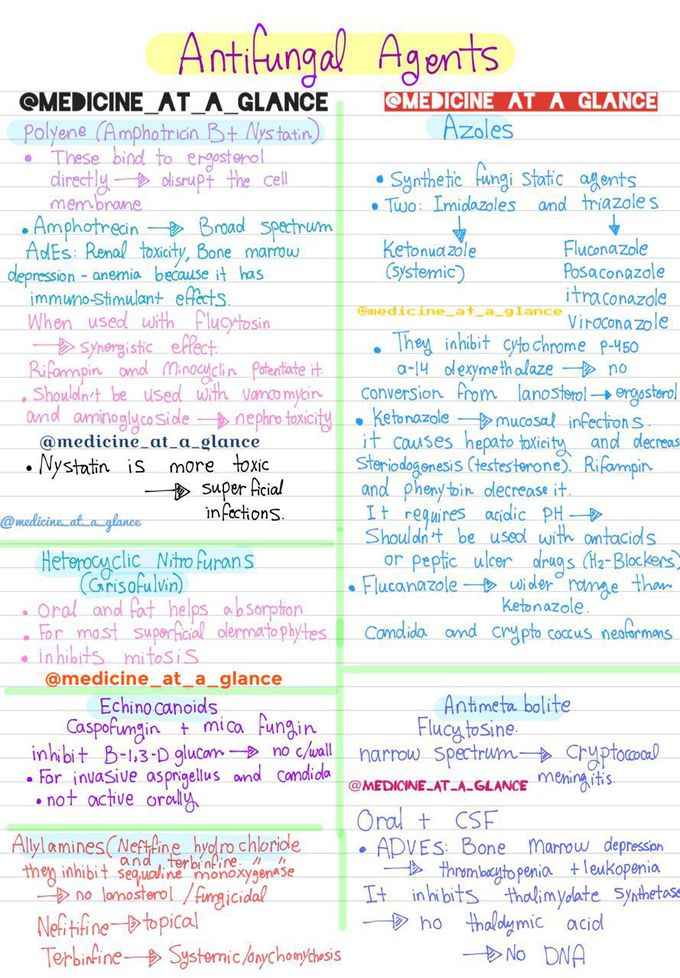 Antifungal Agents
@MEDICINE_AT_A_GLANCE
Polyene (Amphotricin B + Nystatin)
• These bind to ergosterol
directly → disrupt the cell
membrane
• Amphotrecin → Broad spectrum
AdEs: Renal toxicity, Bone marrow
depression - anemia because it has
immuno-stimulant effects.
When used with flucytosin
→ Synergistic effect.
Rifampin and Minocyclin potentiate it.
• Shouldn't be used with vancomycin
and aminoglycoside → nephrotoxicity
@medicine_at_a_glance
• Nystatin is more toxic
→ superficial
infections.
@medicine_at_a_glance
Heterocyclic Nitrofurans
(Grisofulvin)
• Oral and fat helps absorption
• For most superficial dermatophytes
• inhibits mitosis
@medicine_at_a_glance
Echinocanoids
Caspofungin + mica fungin
inhibit B-1,3-D glucan → no c/wall
• For invasive asprigellus and candida
• not active orally
Allylamines (Neftifine hydrochloride
and terbinfine. " "
they inhibit sequaline monoxygenase
→ no lanosterol / fungicidal
Nefitifine → topical
Terbinfine → Systemic/onychomythosis
@MEDICINE AT A GLANCE
Azoles
• Synthetic fungi static agents
• Two: Imidazoles and triazoles
Ketonuazole
(systemic)
Fluconazole
Posaconazole
itraconazole
Viroconazole
@medicine_at_a_glance
• They inhibit cytochrome P-450
a-14 dexymethalaze → no
conversion from lanosterol → ergosterol
• Ketonazole → mucosal infections.
it causes hepato toxicity and decreas
Steriodogenesis (testesterone). Rifampin
and phenytoin decrease it.
It requires acidic PH →
Shouldn't be used with antacids
or peptic ulcer drugs (H2-Blockers)
• Flucanazole → wider range than
Ketonazole.
Candida and crypto coccus neoformans
Antimetabolite
Flucytosine.
narrow spectrum → Cryptoccocal
meningitis.
@MEDICINE_AT_A_GLANCE
Oral + CSF
• ADVES: Bone Marrow depression
→ thrombocytopenia + leukopenia
It inhibits thalimydate synthetase
→ no thaldymic acid
→ No DNA